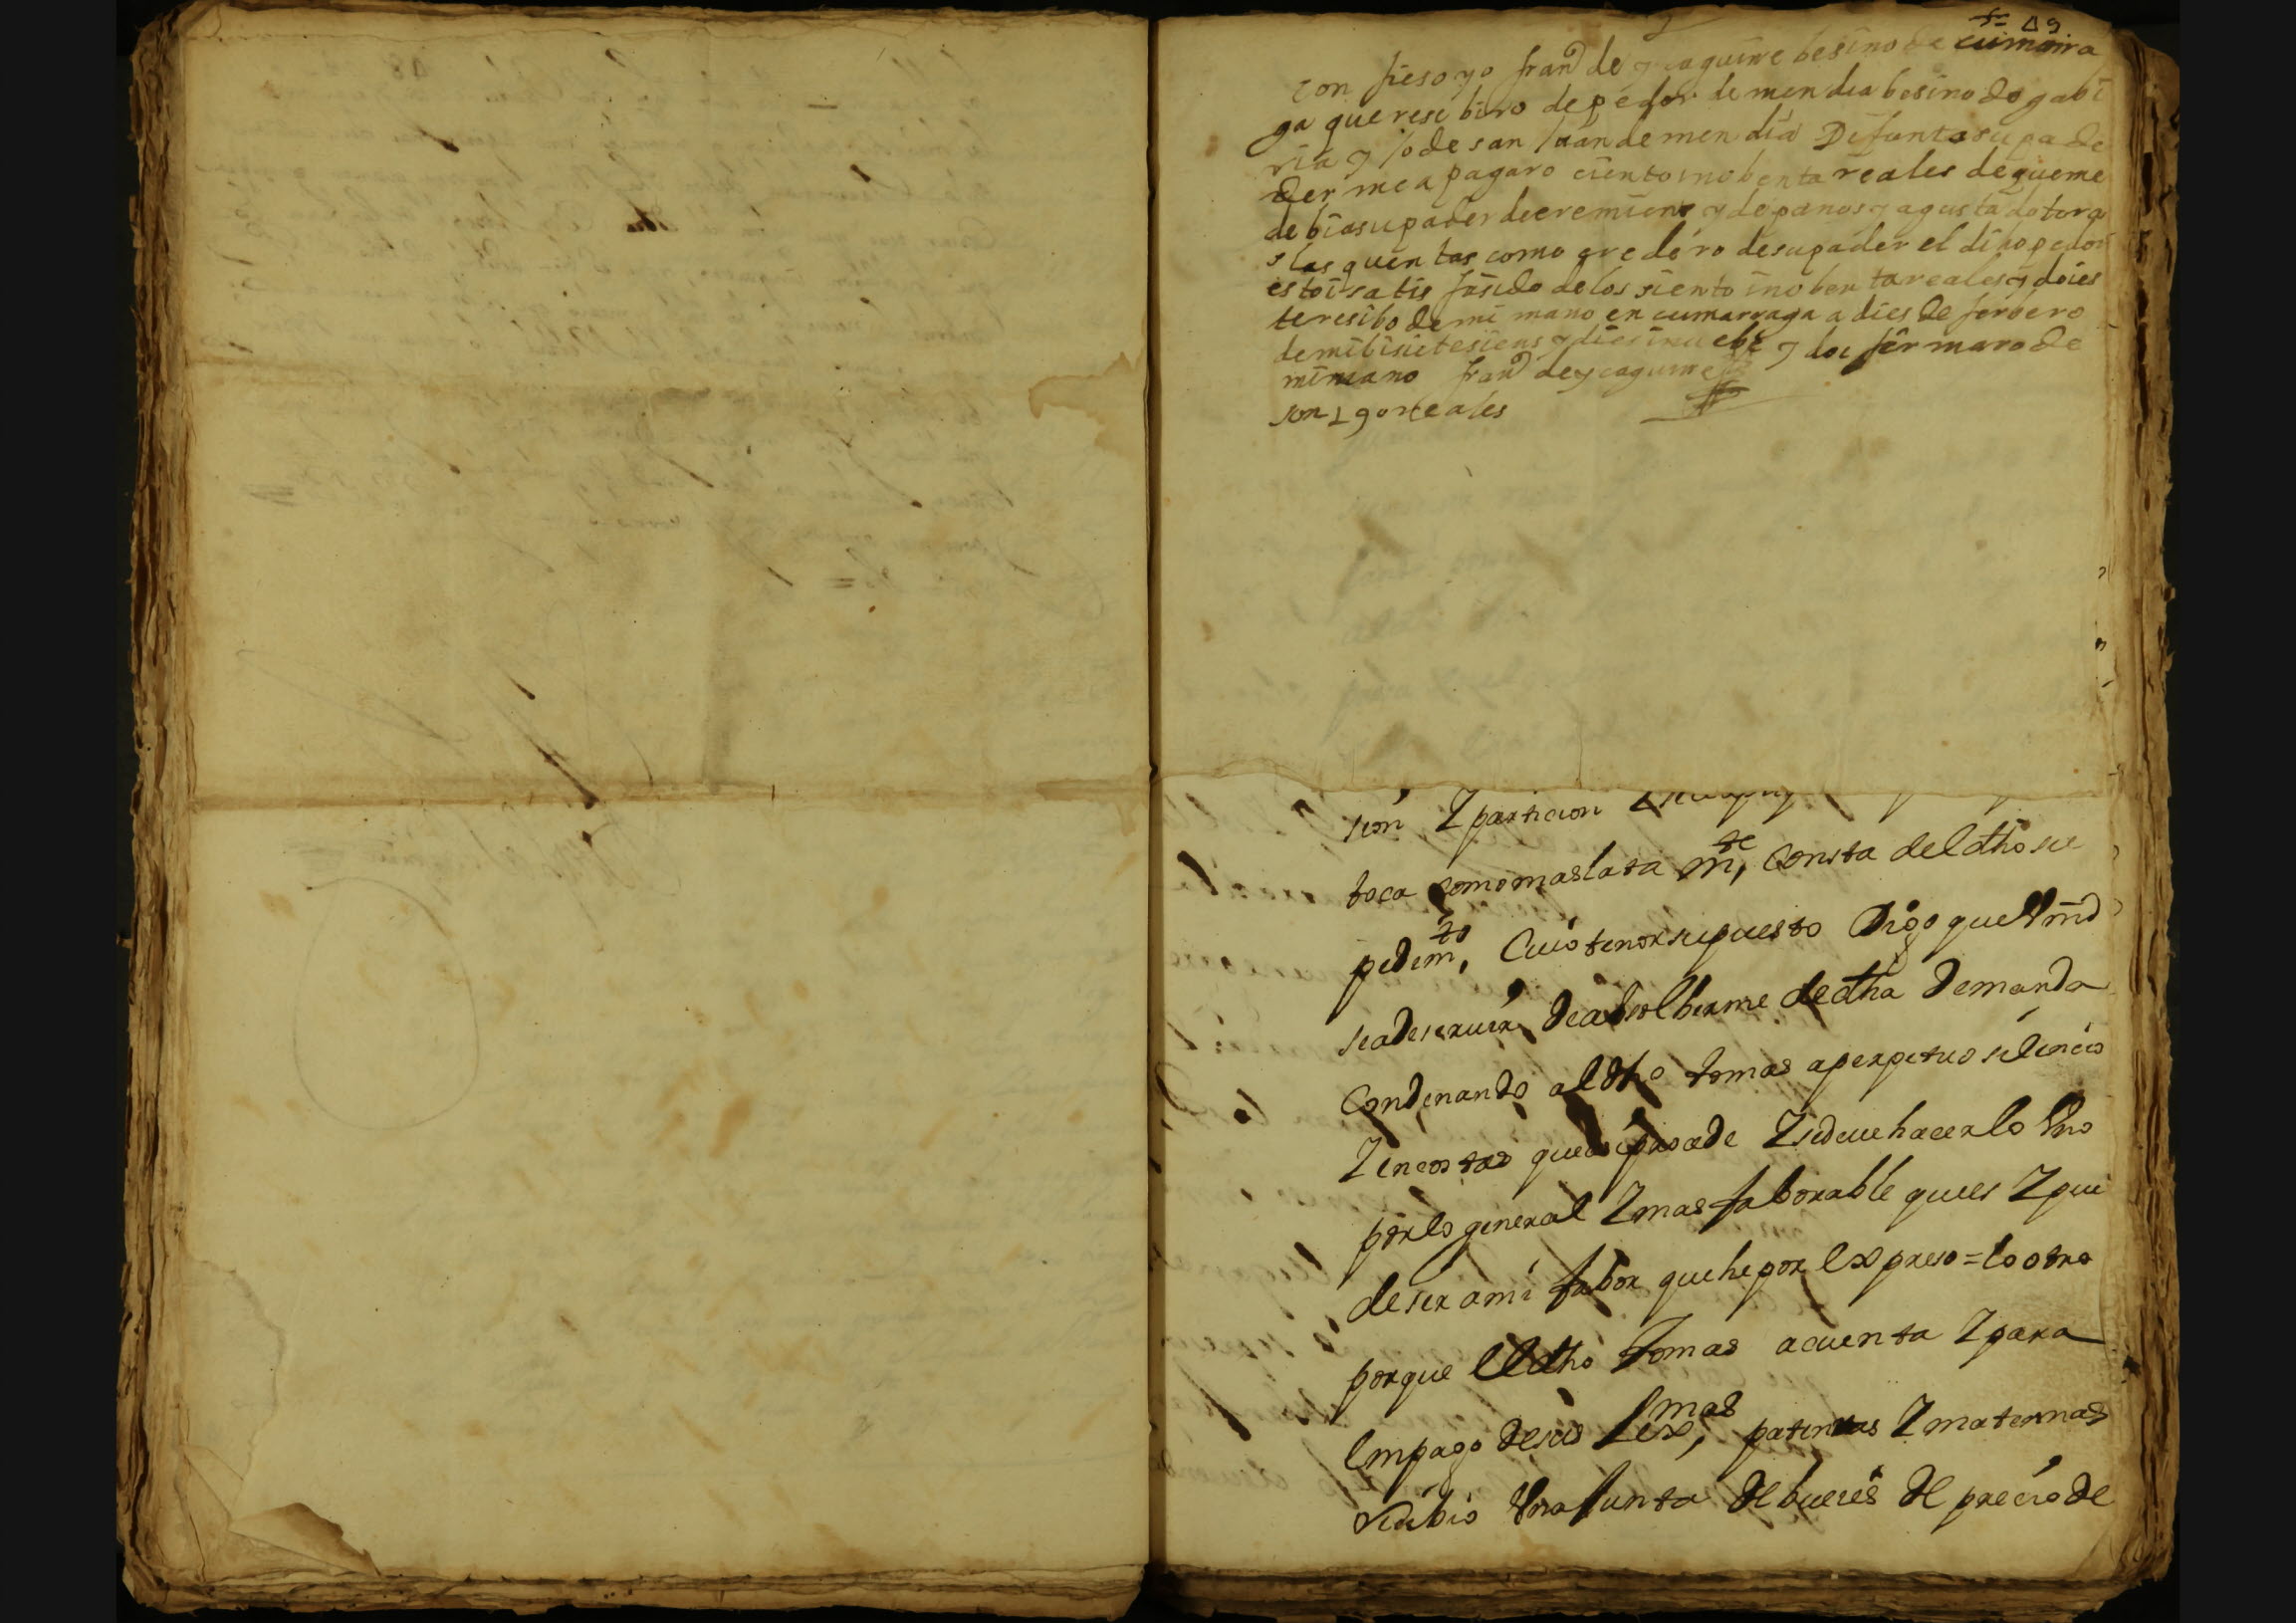 con fieso yo franco de ycaguirre besino de cumara
ga que resebiro de pedor de mendia besino de gabi
ria y jo de san Juan de mendia Defunto su pa de
der me a pagaro ciento inobenta reales de que me
debia su pader de eremiens y de panos y agustado tora
s las quentas como eredero de su pader el diho pedor
estoi satis fasido de los siento inobenta reales y doies
te resibo de mi mano en cumarraga a dies de ferbero
de mil i sietesiens y dies inuebe y doi fermaro de
mi mano franco de ycaguirre
son 190 reales
sion, Z particion
toca como mas lata mte, Consta del dho su
pedimto, Cuio tenor supuesto Digo que Vmd
sea de seruir de absolberme de dha Demanda
Condenando al dho tomas a perpetuo silencio
Z en costas que asi prosede Z se deue hacer lo Vno
por lo general Z mas faborable que es Z que
de ser a mi fabor que he por Expreso = lo otro
porque El dho Tomas a cuenta Z para
En pago de sus Lexmas, paternas Z maternas
Recibio Vna Junta de bueies de precio de